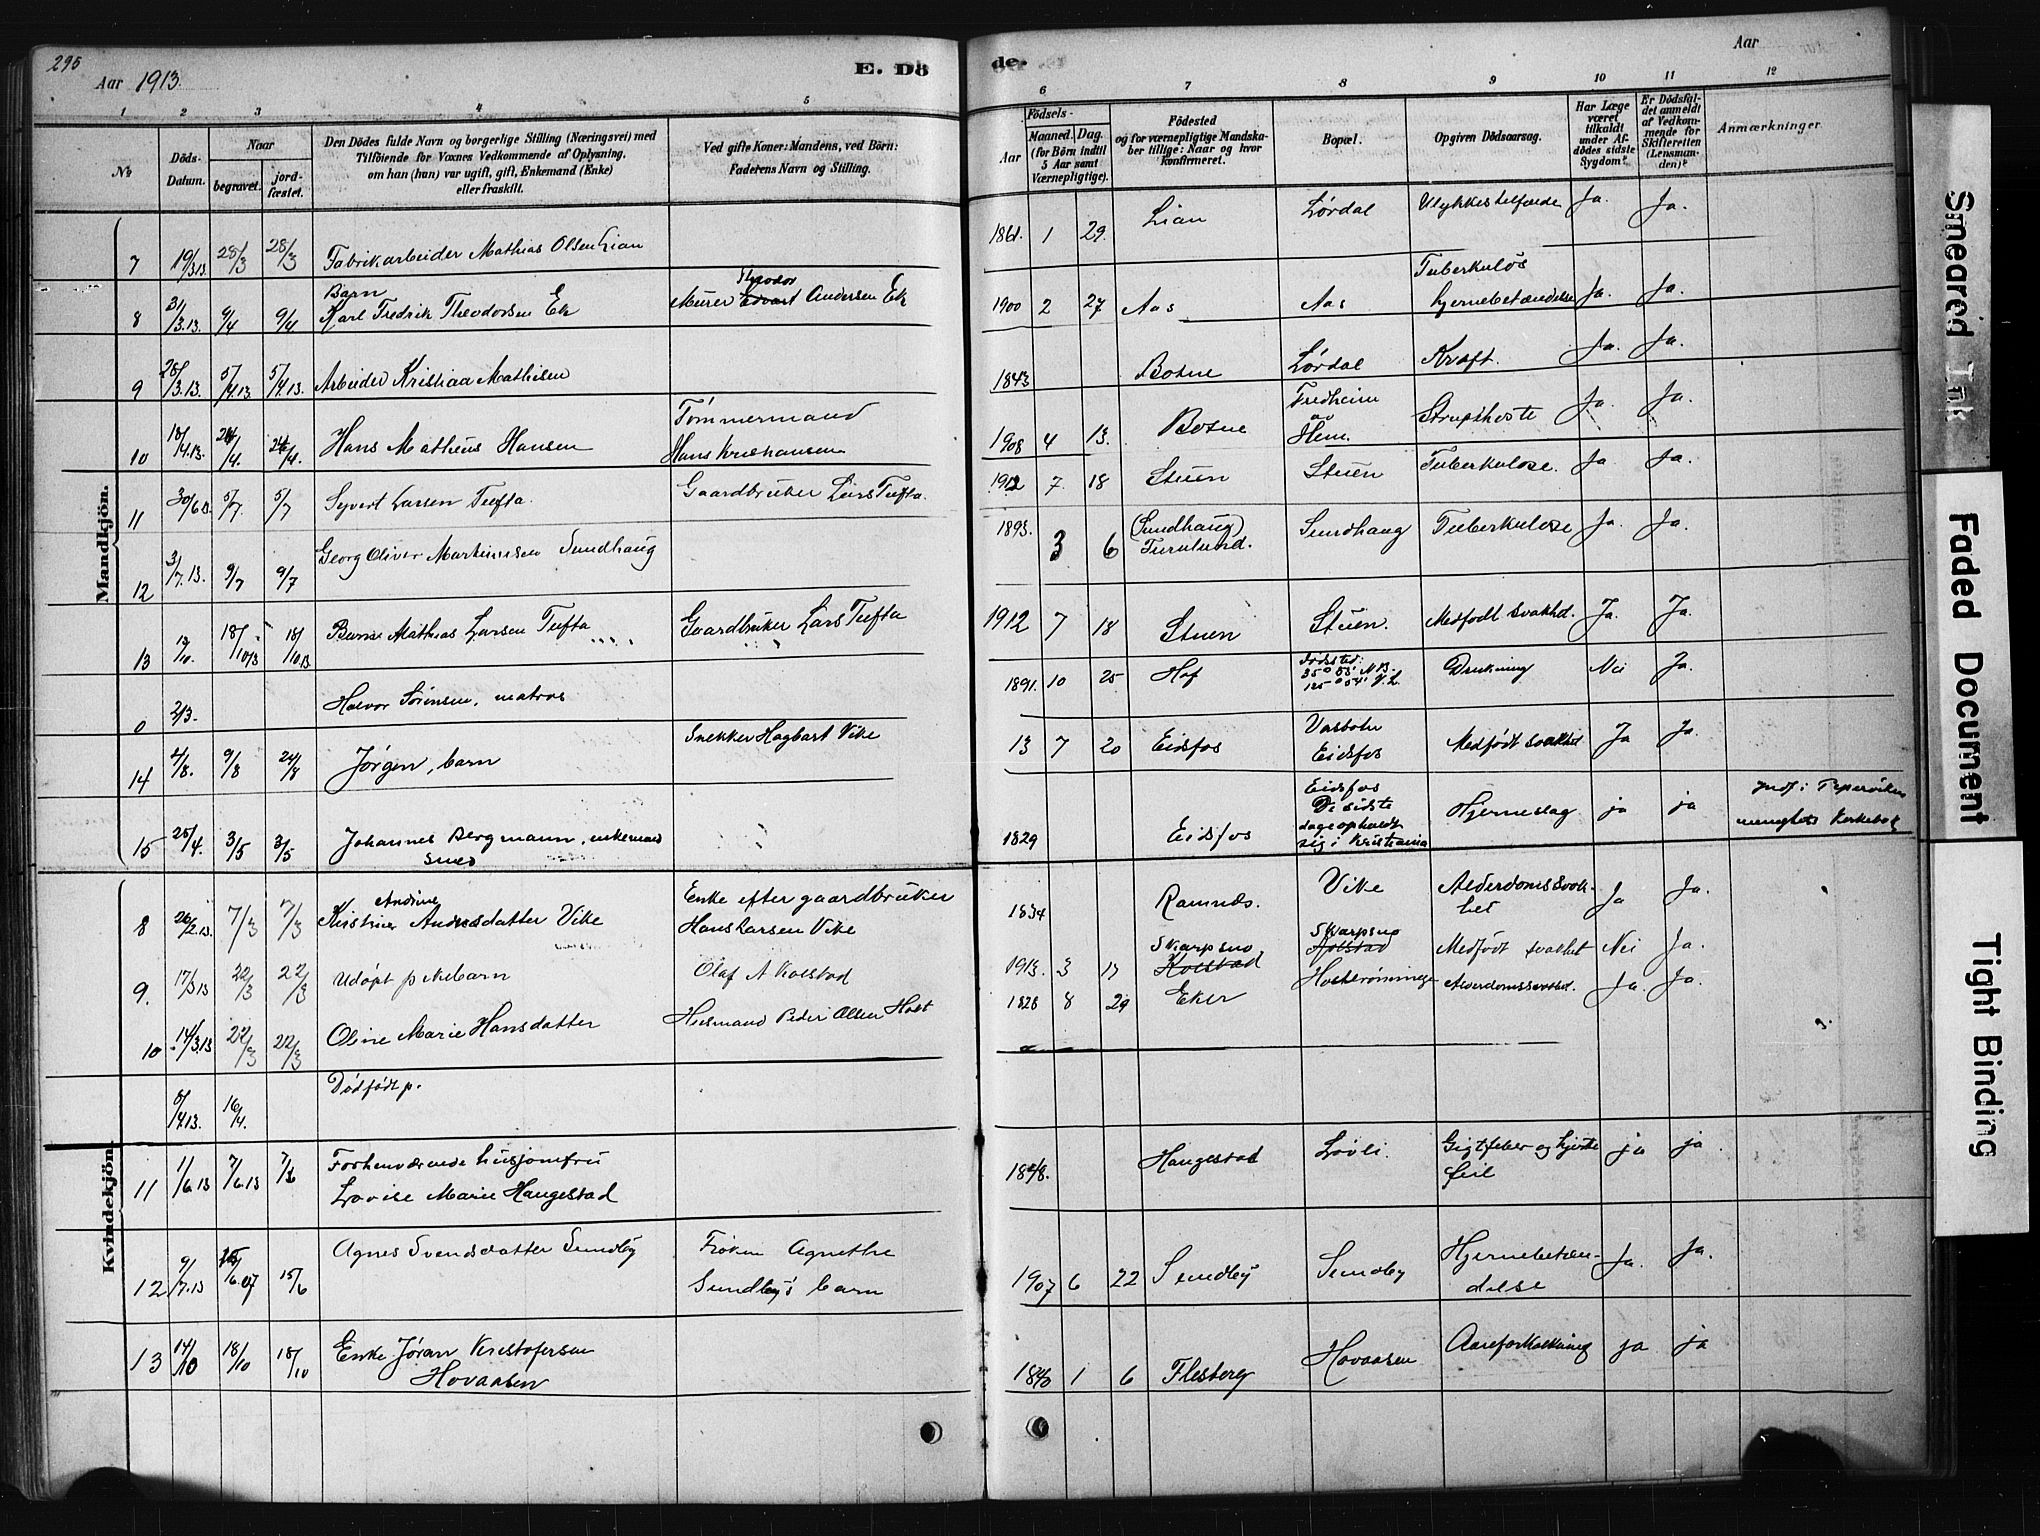 295
Aar 1913
E. Dö
de.
Aar
1 2 3 4 5
6 7 8 9 10 11 12
No
Döds-
Datum.
Naar
begravet.
jord-
fæstet.
Den Dödes fulde Navn og borgerlige Stilling (Næringsvei) med
Tilföiende for Voxnes Vedkommende af Oplysning,
om han (hun) var ugift, gift, Enkemand (Enke)
eller fraskilt.
Ved gifte Koner: Mandens, ved Börn:
Faderens Navn og Stilling.
Födsels-
Aar
Maaned.
Dag.
(for Börn indtil
5 Aar samt
Værnepligtige).
Födested
og for værnepligtige Mandska-
ber tillige: Naar og hvor
konfirmeret.
Bopæl.
Opgiven Dödsaarsag.
Har Læge
været
tilkaldt
under Af-
dödes sidste
Sygdom?
Er Dödsfal-
det anmeldt
af Vedkom-
mende for
Skifteretten
(Lensman-
den)?
Anmærkninger.
Mandkjön.
7 19/3.13 28/3 28/3 Fabrikarbeider Mathias Olsen Lian 1861. 1 29. Lian Lørdal Ulykkestilfælde Ja. Ja.
8 31/3.13. 9/4 9/4 Barn Karl Fredrik Theodorsen Ek Murer Theodor Andersen Ek 1900 2 27 Aas Aas Tuberkuløs hjernebetændelse Ja. Ja.
9 28/3.13. 5/4.13. 5/4.13. Arbeider Kristian Mathisen 1843 Botne Lørdal Kræft. Ja. Ja.
10 18/4.13. 24/4. 24/4. Hans Matheus Hansen Tømmermand Hans Kristiansen 1908 4 13. Botne Fredheim av Hem. Strupehoste Ja. Ja.
11 30/6 13. 5/7. 5/7 Syvert Larsen Tufta. Gaardbruker Lars Tufta. 1912 7. 18 Stuen Stuen Tuberkulose. Ja Ja.
12 3/7.13. 9/7 9/7 Georg Oliver Martinusen Sundhaug 1893. 3 6 (Sundhaug) Furulund. Sundhaug Tuberkulose Ja. Ja.
13 /10. 18/10 13 18/10.13. Barn Mathias Larsen Tufta Gaardbruker Lars Tufta 1912 7 18 Stuen Stuen. Medfødt svakhd. Ja. Ja.
0 2/3. Halvor Sørensen, matros 1891. 10 25 Hof Dødssted: Drukning Nei Ja.
14 4/8. 9/8 24/8 Jørgen, barn Snekker Hagbart Vike 13 7 20 Eidsfos Vasbotn Eidsfos Medfødt svakhet Ja Ja.
15 25/4. 3/5 3/5 Johannes Bergmann, enkemand smed 1829 Eidsfos Eidsfos De sidste dage opholdt sig i Kristiania Hjerneslag ja ja Indf. i Pipervikens menigheds Kirkebok
Kvindekjön
8 26/2.13. 7/3 7/3 Kristine Andine Andersdatter Vike Enke efter gaardbruker Hans Larsen Vike 1834 Ramnes. Vike Alderdomssvak- het Ja Ja.
9. 17/3 13 22/3 22/3 Udøpt pikebarn Olaf A Kolstad 1913. 3 17 Skarpsno Kolstad Skarpsno Kolstad Medfødt svakhet Nei Ja.
10 14/3.13 22/3 22/3 Oline Marie Hansdatter Husmand Peder Olsen Holt 1828 8 29 Eker Alderdomssvakhd. Ja. Ja.
8/4.13. 16/4. Dødfødt p.
11 1/6.13 7/6.13 Forhenværende husjomfru Lovise Marie Haugestad 1848. Haugestad Løvli. Gigtfeber og hjerte feil ja ja
12 9/7.13 15/6 Agnes Svendsdatter Sundby Frøken Agnethe Sundby's barn 1907 6 22 Sundby Sundby Hjernebetæn- delse Ja. Ja.
13 14/10 18/10 18/10 Enke Jøran Kristofersen Hovaasen 1840 1 6 Flesberg Hovaasen Aareforkalkning ja ja
Smeared Ink
Faded Document
Tight Binding